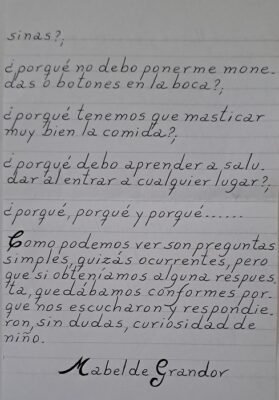 sinas?;
¿porqué no debo ponerme mone-
das o botones en la boca?;
¿porqué tenemos que masticar
muy bien la comida?;
¿porqué debo aprender a salu-
dar al entrar a cualquier lugar?;
¿porqué, porqué y porqué......
Como podemos ver son preguntas
simples, quizás ocurrentes, pero
que si obteníamos alguna respues
ta, quedábamos conformes por-
que nos escucharon y respondie-
ron, sin dudas, curiosidad de
niño.
Mabel de Grandor